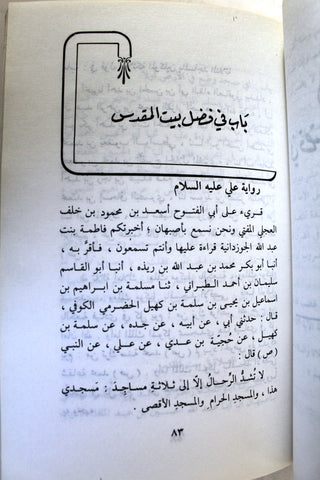 باب في فضل بيت المقدس
رواية علي عليه السلام
قرىء على أبي الفتوح أسعد بن محمود بن خلف
العجلي المفتي ونحن نسمع بأصبهان ؛ أخبرتكم فاطمة بنت
عبد الله الجوزدانية قراءة عليها وأنتم تسمعون ، فأقرَّ به ،
أنبا أبو بكر محمد بن عبد الله بن ريذه ، أنبا أبو القاسم
سليمان بن أحمد الطبراني ، ثنا مسلمة بن ابراهيم بن
اسماعيل بن يحيى بن سلمة بن كهيل الحضرمي الكوفي ،
قال : حدثني أبي ، عن أبيه ، عن جده ، عن سلمة بن
كهيل ، عن حُجيّة بن عدي ، عن علي ، عن النبي
(ص) قال :
لا تُشدُّ الرِّحالُ إلاّ إلى ثلاثةِ مساجِدَ : مَسجدي
هذا ، والمسجدِ الحرامِ والمسجدِ الأقصى .
٨٣